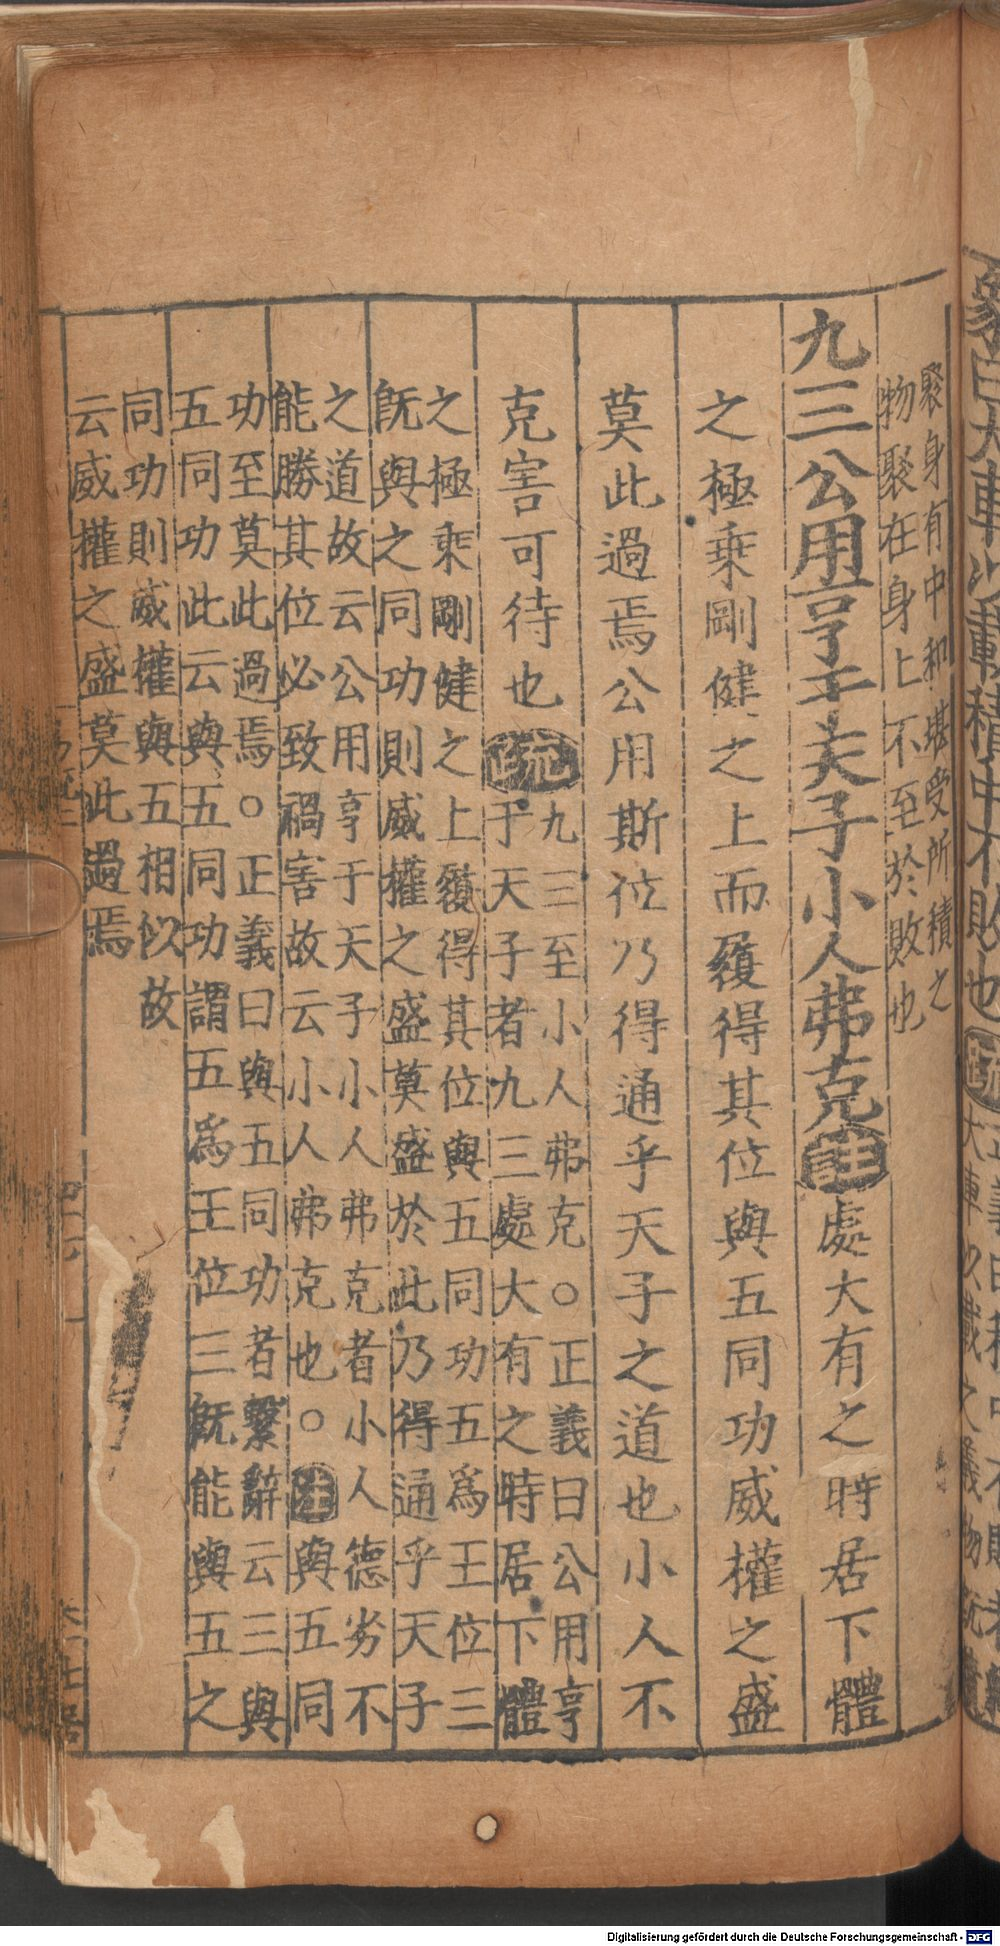 聚身有中和堪受所積之
物聚在身上不至於敗也
九三公用亨于天子小人弗克註處大有之時居下體
之極乘剛健之上而履得其位與五同功威權之盛
莫此過焉公用斯位乃得通乎天子之道也小人不
克害可待也疏
九三至小人弗克○正義曰公用亨
于天子者九三處大有之時居下體
之極乘剛健之上履得其位與五同功五爲王位三
旣與之同功則威權之盛莫盛於此乃得通乎天子
之道故云公用亨于天子小人弗克者小人德劣不
能勝其位必致禍害故云小人弗克也○註與五同
功至莫此過焉○正義曰與五同功者繫辭云三與
五同功此云與五同功謂五爲王位三旣能與五之
同功則威權與五相似故
云威權之盛莫此過焉
Digitalisierung gefördert durch die Deutsche Forschungsgemeinschaft - DFG